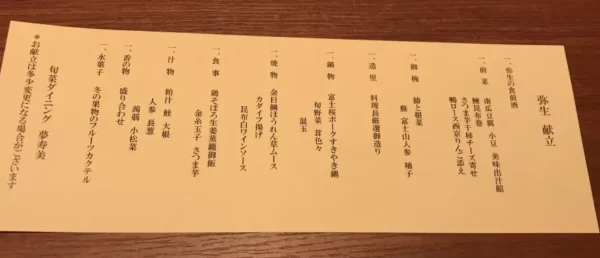 弥生 献立
一、弥生の食前酒
一、前菜 南瓜豆腐 小豆 美味出汁餡
鰊昆布巻
さつま芋干柿チーズ寄せ
鴨ロース西京りんご添え
一、御椀 鰆と根菜
蕪 富士山人参 柚子
一、造里 料理長厳選御造り
一、鍋物 富士桜ポークすきやき鍋
旬野菜 茸色々
温玉
一、焼物 金目鯛ほうれん草ムース
カダイフ揚げ
昆布白ワインソース
一、食事 鶏そぼろ生姜釜鐵御飯
金糸玉子 さつま芋
一、汁物 粕汁 鮭 大根
人参 長葱
蒟蒻 小松菜
一、香の物 盛り合わせ
一、水菓子 冬の果物のフルーツカクテル
旬菜ダイニング 夢寿美
＊お献立は多少変更になる場合がございます